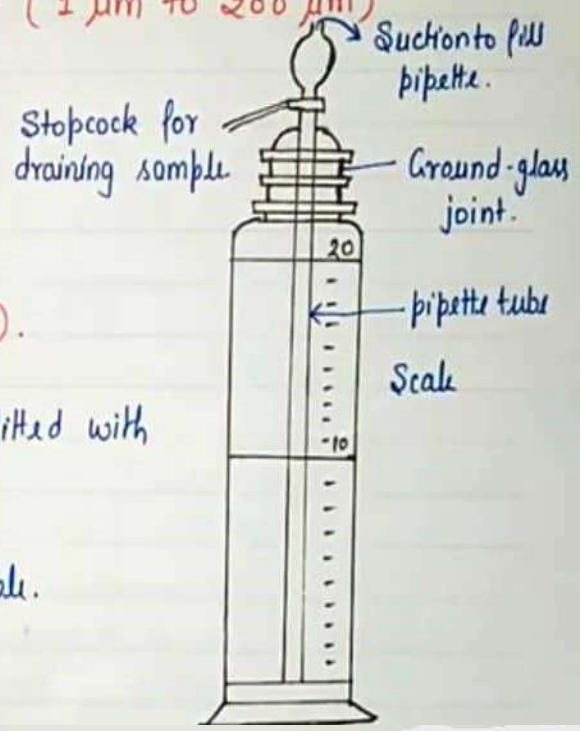 (1 μm to 200 μm)
Suction to fill
pipette.
Stopcock for
draining sample
Ground-glass
joint.
20
).
pipette tube
Scale
itted with
-10
ole.